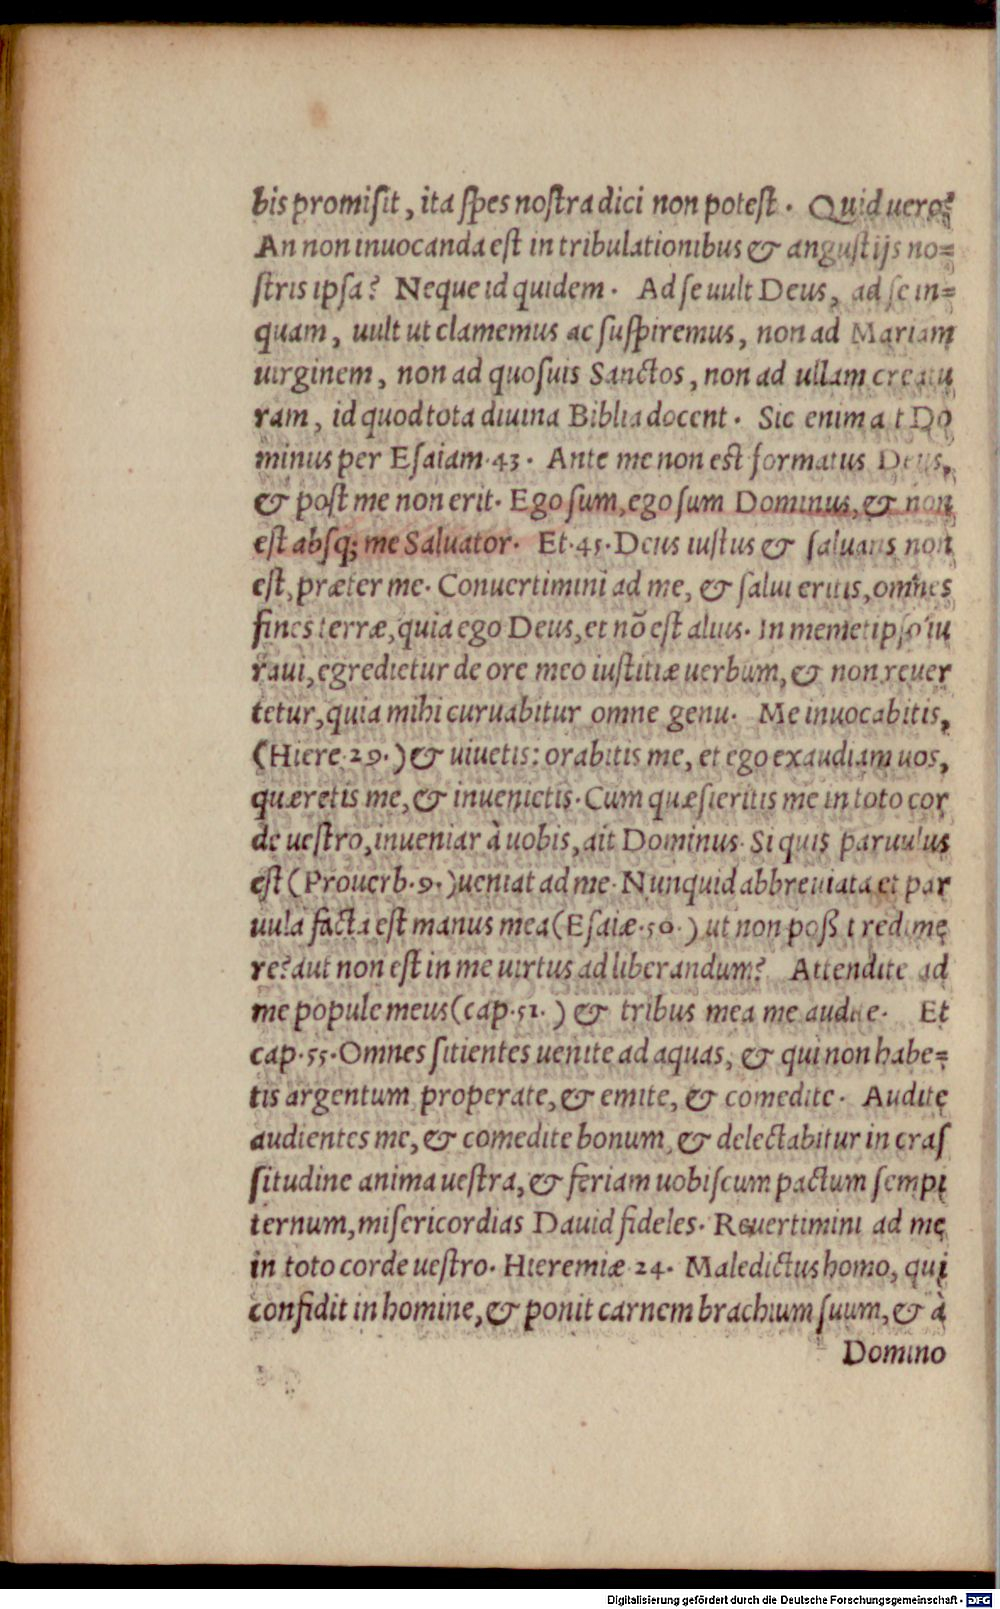 bis promiſit, ita ſpes noſtra dici non poteſt. Quid uero?
An non inuocanda eſt in tribulationibus & anguſtijs no=
ſtris ipſa? Neque id quidem. Ad ſe uult Deus, ad ſe in=
quam, uult ut clamemus ac ſuſpiremus, non ad Mariam
uirginem, non ad quoſuis Sanctos, non ad ullam creatu
ram, id quod tota diuina Biblia docent. Sic enim a t Do
minus per Eſaiam.43. Ante me non eſt formatus Deus,
& poſt me non erit. Ego ſum, ego ſum Dominus, & non
eſt abſq; me Saluator. Et.45. Deus iuſtus & ſaluans non
eſt, præter me. Conuertimini ad me, & ſalui eritis, omnes
fines terræ, quia ego Deus, et nõ eſt alius. In memetipſo iu
raui, egredietur de ore meo iuſtitiæ uerbum, & non reuer
tetur, quia mihi curuabitur omne genu. Me inuocabitis,
(Hiere.29.) & uiuetis: orabitis me, et ego exaudiam uos,
quæretis me, & inuenietis. Cum quæſieritis me in toto cor
de ueſtro, inueniar à uobis, ait Dominus. Si quis paruulus
eſt (Prouerb.9.) ueniat ad me. Nunquid abbreuiata et par
uula facta eſt manus mea (Eſaiæ.50.) ut non poß t redime
re? aut non eſt in me uirtus ad liberandum? Attendite ad
me popule meus (cap.51.) & tribus mea me audite. Et
cap.55. Omnes ſitientes uenite ad aquas, & qui non habe=
tis argentum properate, & emite, & comedite. Audite
audientes me, & comedite bonum, & delectabitur in craſ
ſitudine anima ueſtra, & feriam uobiſcum pactum ſempi
ternum, miſericordias Dauid fideles. Reuertimini ad me
in toto corde ueſtro. Hieremiæ 24. Maledictus homo, qui
confidit in homine, & ponit carnem brachium ſuum, & à
Domino
Digitalisierung gefördert durch die Deutsche Forschungsgemeinschaft - DFG